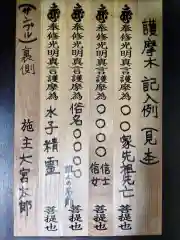 護摩木記入例 見本
奉修光明真言護摩為 〇〇家先祖死亡 菩提也
奉修光明真言護摩為 〇〇〇〇 信士 信女 菩提也
奉修光明真言護摩為 俗名〇〇〇〇 菩提也
奉修光明真言護摩為 水子精霊 菩提也
裏側 施主 大宮太郎